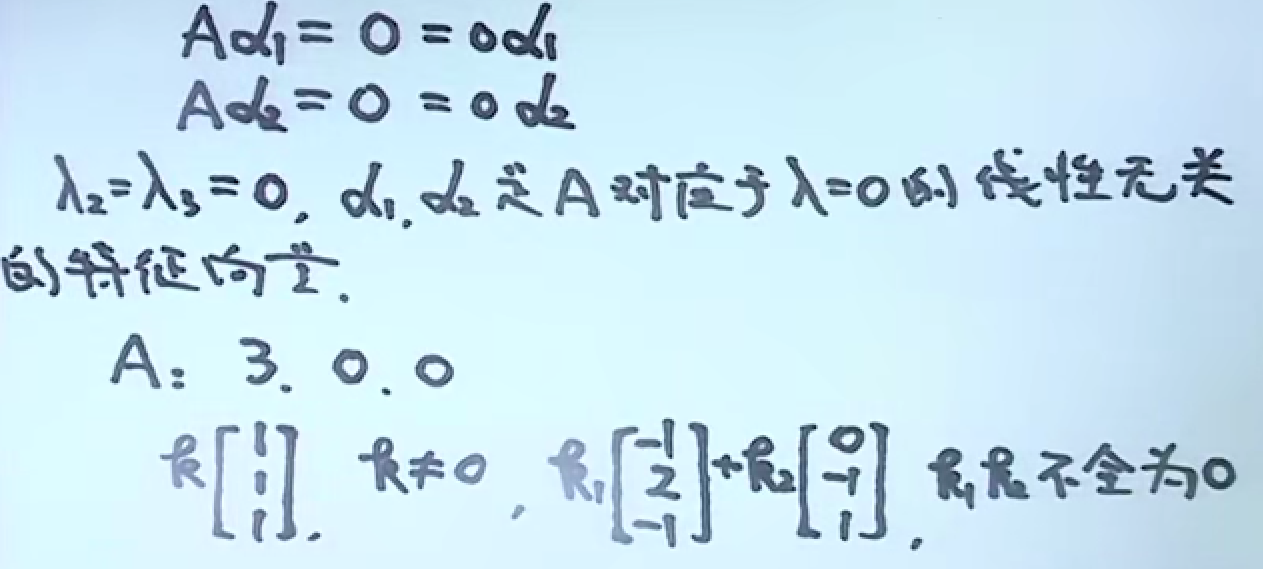 Aα₁ = 0 = 0α₁
Aα₂ = 0 = 0α₂
λ₂=λ₃=0, α₁,α₂是A对应于λ=0的线性无关
的特征向量.
A: 3. 0. 0
k[1 1 1]. k≠0, k₁[-1 2 -1]+k₂[0 -1 1], k₁k₂不全为0